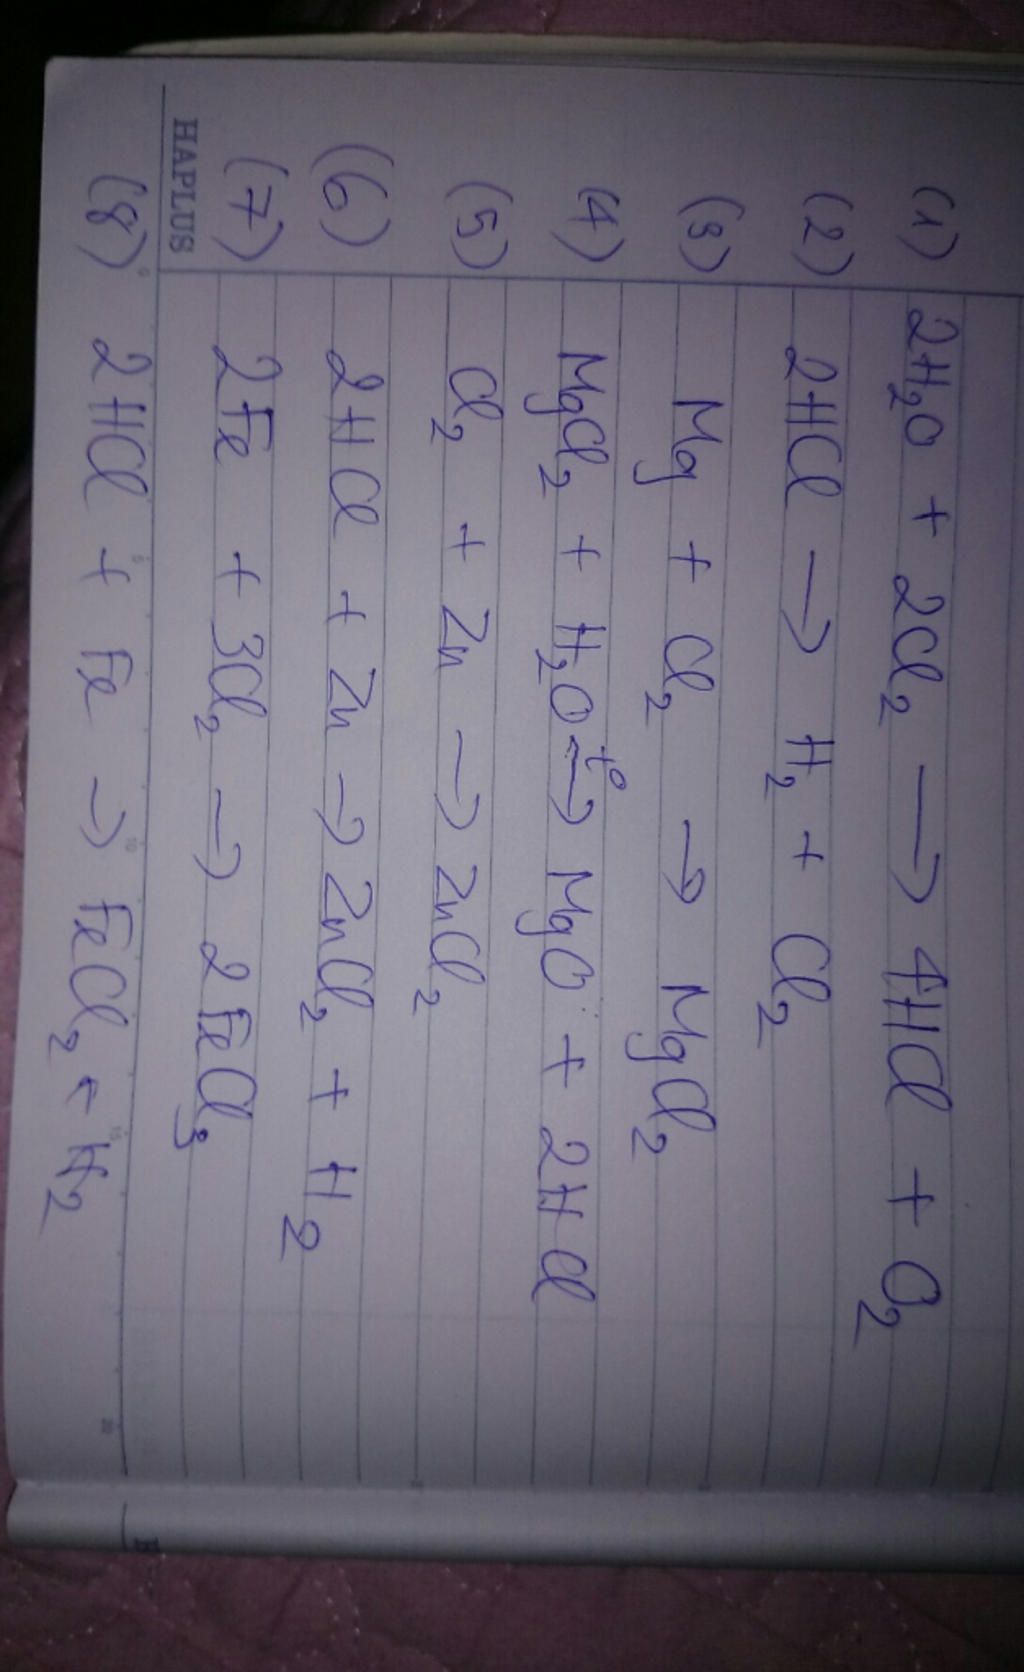 (1) 2H₂O + 2Cl₂ → 4HCl + O₂
(2) 2HCl → H₂ + Cl₂
(3) Mg + Cl₂ → MgCl₂
(4) MgCl₂ + H₂O t° → MgO + 2HCl
(5) Cl₂ + Zn → ZnCl₂
(6) 2HCl + Zn → ZnCl₂ + H₂
(7) 2Fe + 3Cl₂ → 2FeCl₃
HAPLUS
(8) 2HCl + Fe → FeCl₂ + H₂